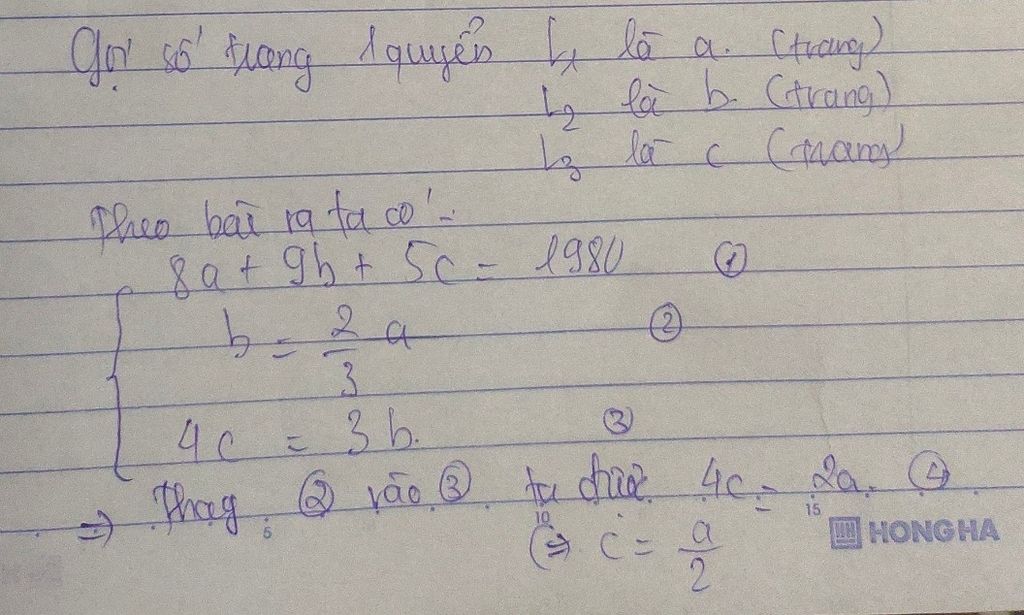 Gọi số trang 1 quyển L₁ là a. (trang)
L₂ là b. (trang)
L₃ là c (trang)
Theo bài ra ta có:
8a + 9b + 5c = 1980 ①
b = 2/3 a ②
4c = 3b. ③
⇒ Thay ② vào ③ ta được 4c = 2a. ④
5 10 15
⇔ c = a/2
HONG HA